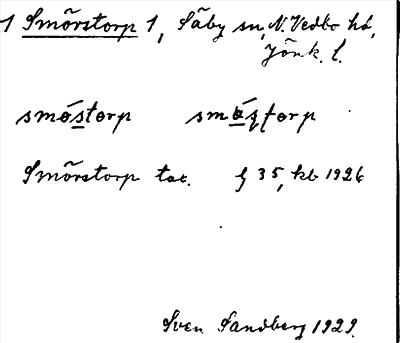 1 Smörstorp 1, Säby sn, N. Vedbo hd,
Jönk. l.
smøstorp smøstorp
Smörstorp tax. § 35, kb 1926
Sven Sandberg 1929.